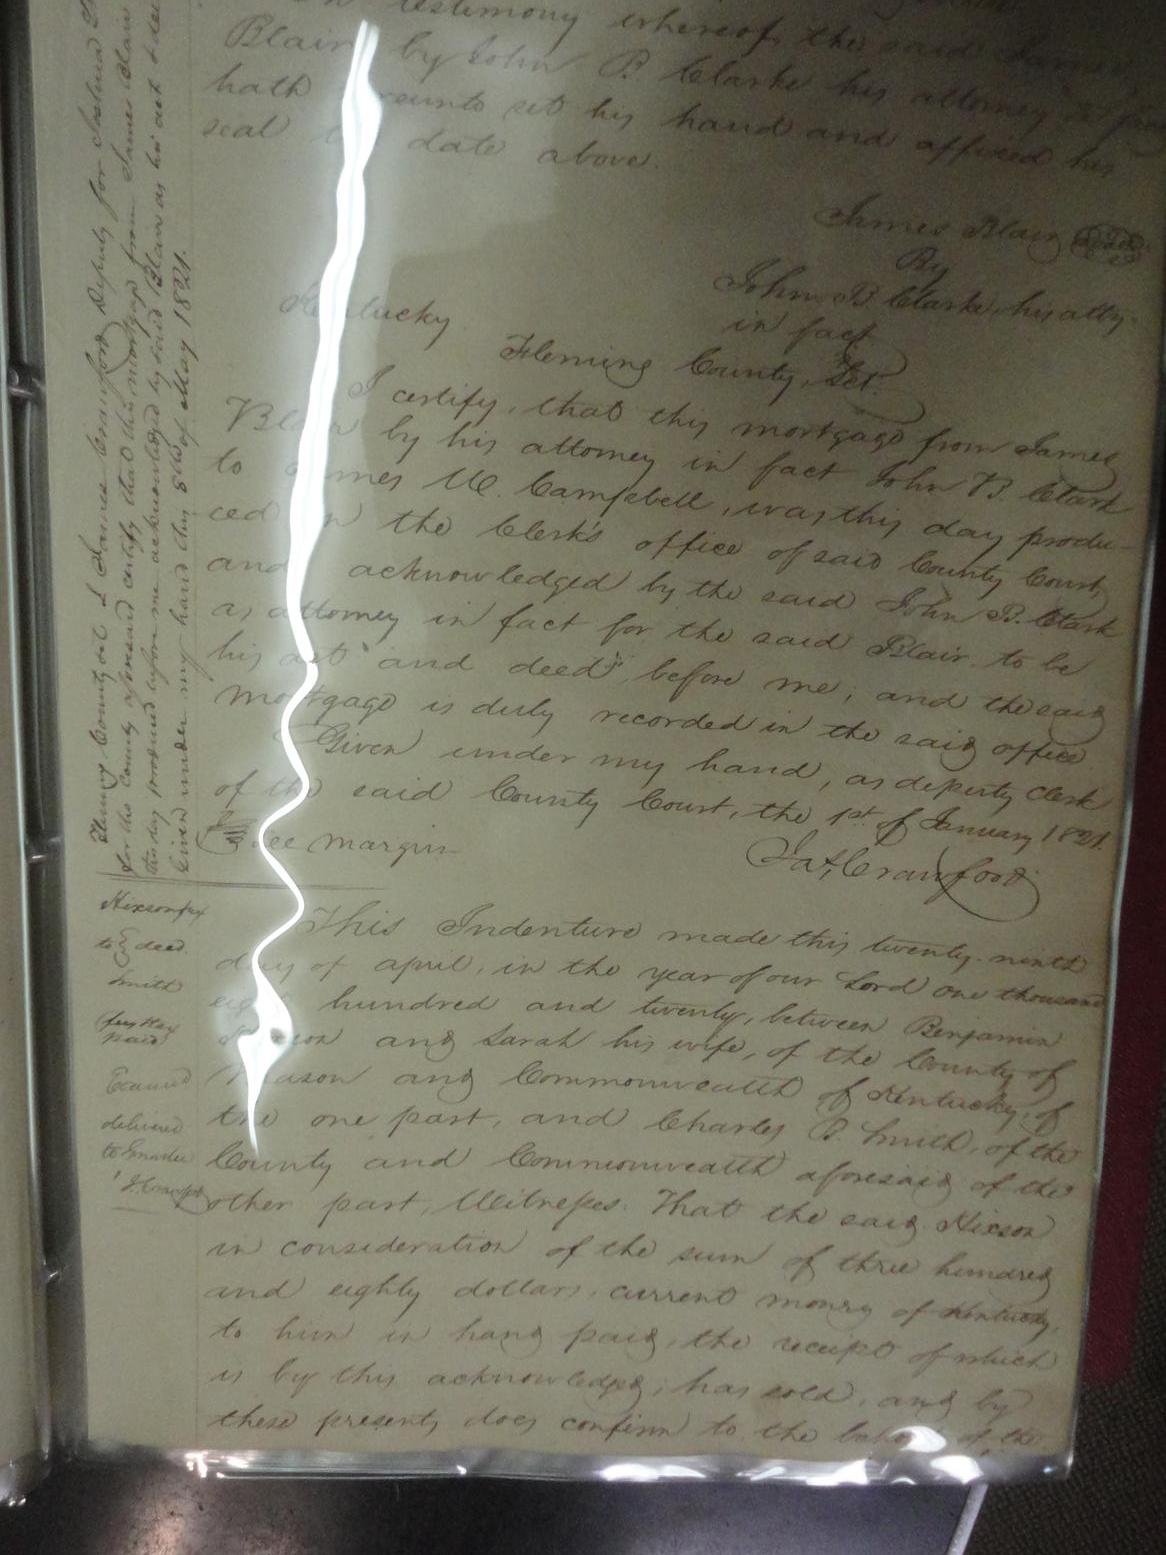 In testimony whereof, the said James
Blair by John B. Clarke his attorney in fact
hath hereunto set his hand and affixed his
seal the date above.
James Blair Seal
By
John B Clarke, his atty.
in fact
Kentucky
Fleming County, Sct.
I certify, that this mortgage from James
Blair by his attorney in fact John B. Clark
to James W. Campbell, was this day produ-
ced in the Clerk's office of said County Court,
and acknowledged by the said John B. Clark
as attorney in fact for the said Blair to be
his act and deed, before me, and the said
mortgage is duly recorded in the said office
Given under my hand, as deputy clerk
of the said County Court, the 1st of January 1821.
See margin
Jas. Crawford
Fleming County sct. I James Crawford Deputy for Joshua
for the County aforesaid certify that this mortgage from James Blair
this day produced before me acknowledged by said Blair as his act & deed
Given under my hand this 8th of May 1821.
Hixson &ux
to deed
Smith
fees &tax
paid
Examd
delivered
to Grantee
J. Crawford
This Indenture made this twenty-ninth
day of april, in the year of our Lord one thousand
eight hundred and twenty, between Benjamin
Hixson and Sarah his wife, of the County of
Mason and Commonwealth of Kentucky, of
the one part, and Charles P. Smith, of the
County and Commonwealth aforesaid of the
other part, Witnesses. That the said Hixson
in consideration of the sum of three hundred
and eighty dollars, current money of Kentucky,
to him in hand paid, the receipt of which
is by this acknowledged, has sold, and by
these presents does confirm to the behoof of the